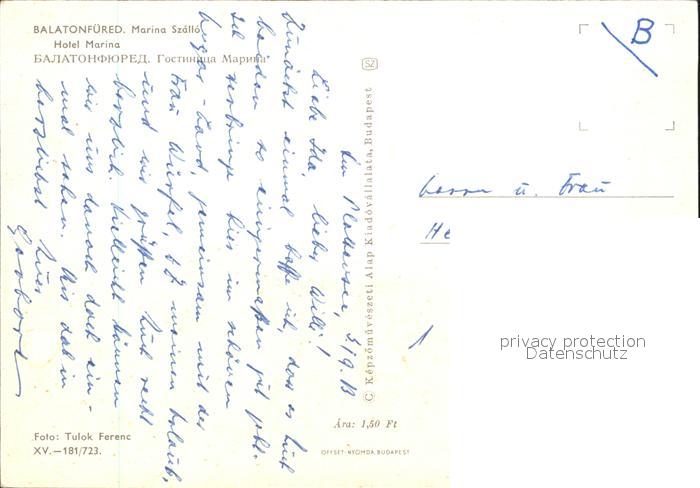 BALATONFÜRED. Marina Szálló
Hotel Marina
БАЛАТОНФЮРЕД. Гостиница Марина
Am Plattensee, 3.9.73
Liebe Ida, lieber Willi!
Zunächst einmal hoffe ich, dass es Euch
beiden so einigermaßen gut geht.
Ich verbringe hier im schönen
Ungar-Land, gemeinsam mit der
Frau Würfel, meinen Urlaub,
und wir grüßen Euch recht
herzlich. Vielleicht können
wir uns danach doch ein-
mal sehen. Bis dahin
herzlichst Eure
© Képzőművészeti Alap Kiadóvállalata, Budapest
SZ
B
u. Frau
He
privacy protection
Datenschutz
Ára: 1,50 Ft
Foto: Tulok Ferenc
XV.—181/723.
OFFSET-NYOMDA, BUDAPEST